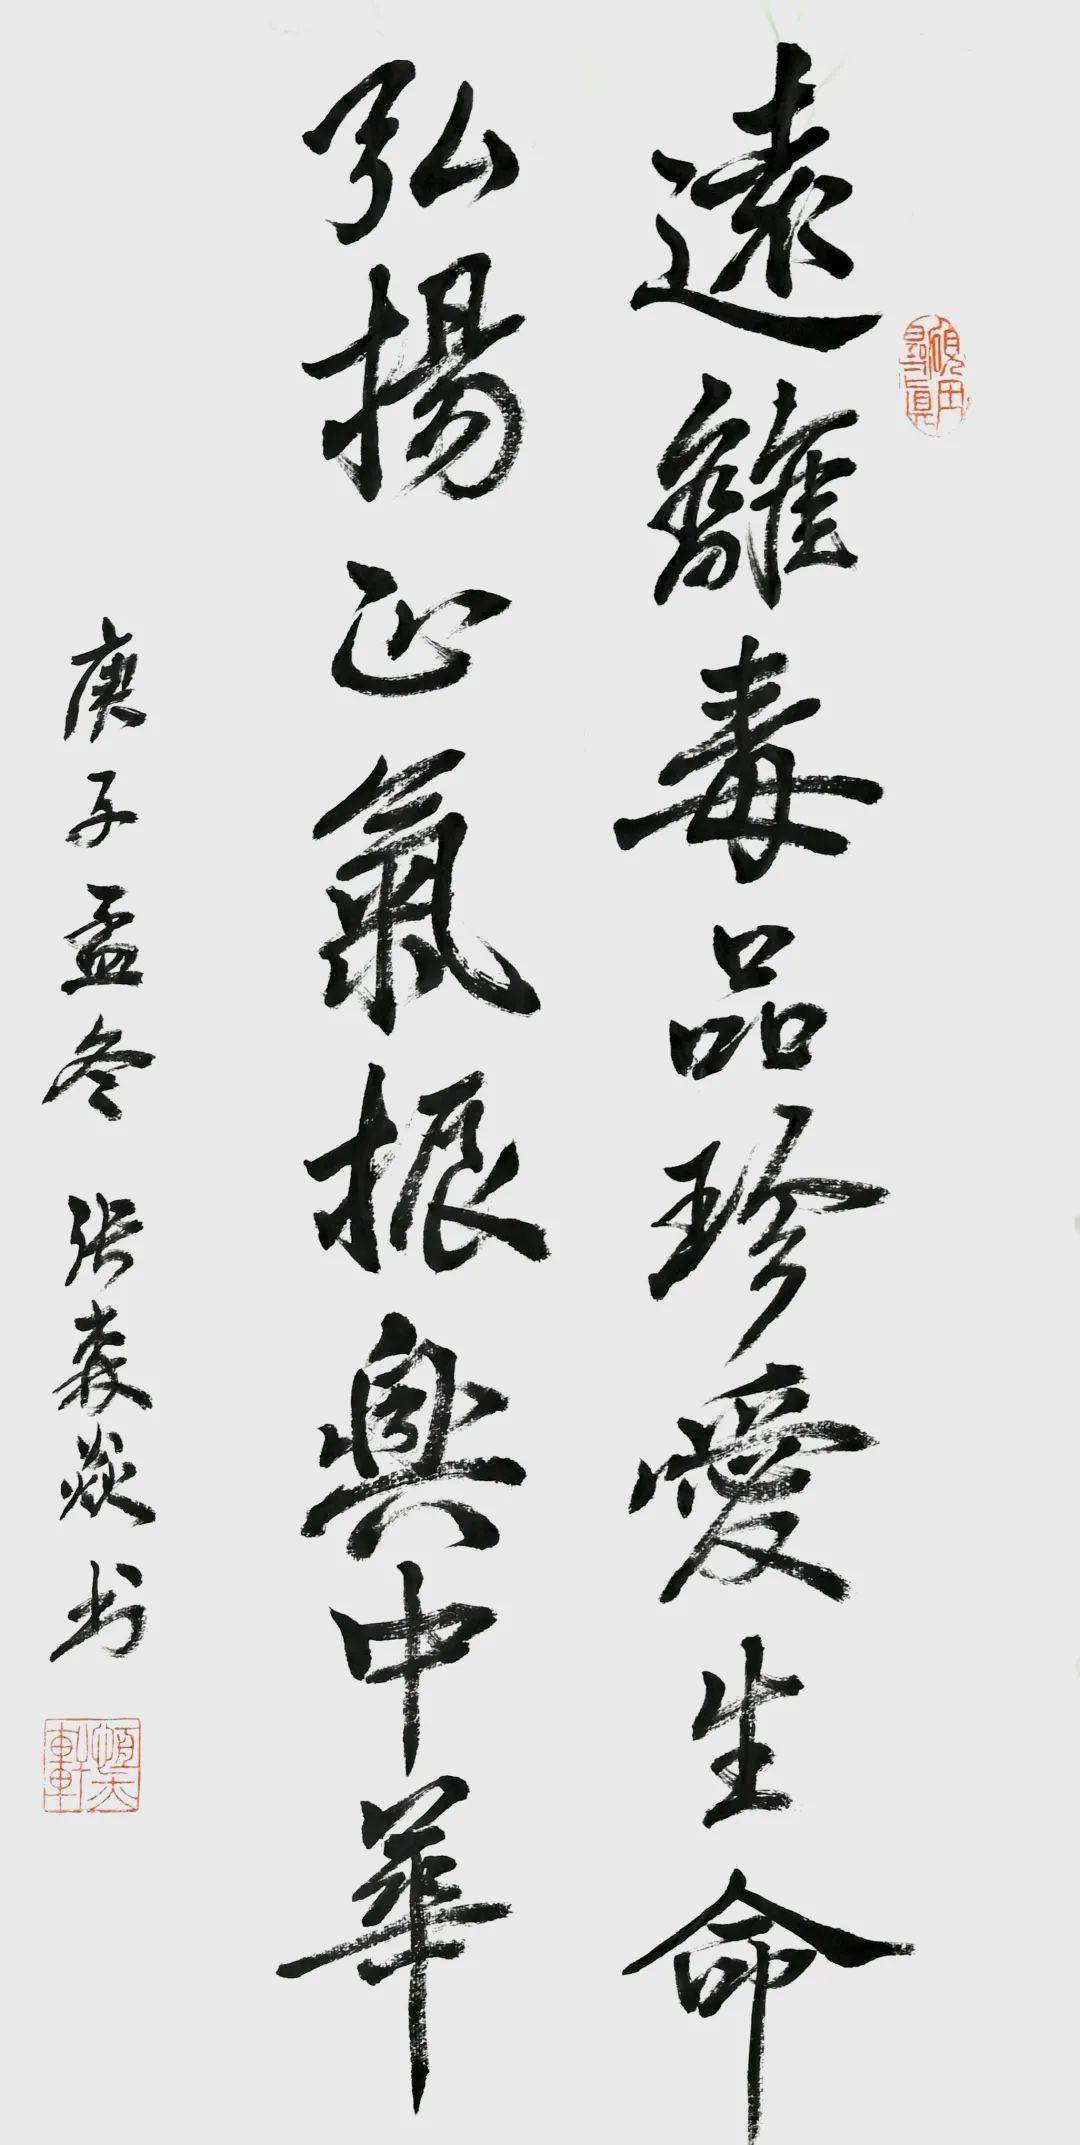 遠離毒品珍愛生命
弘揚正氣振興中華
庚子孟冬 张森焱书